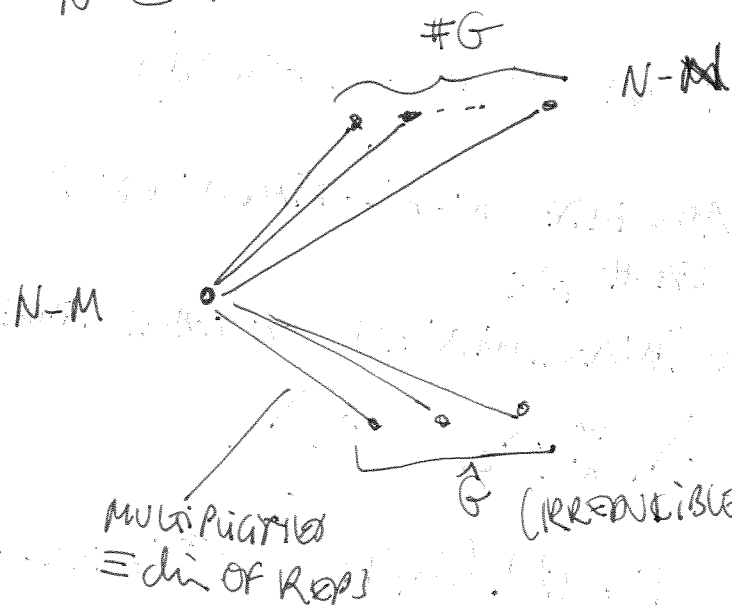 #G
N-N
N-M
Ĝ (IRREDUCIBLE
MULTIPLICITIES
≡ dim OF REPS